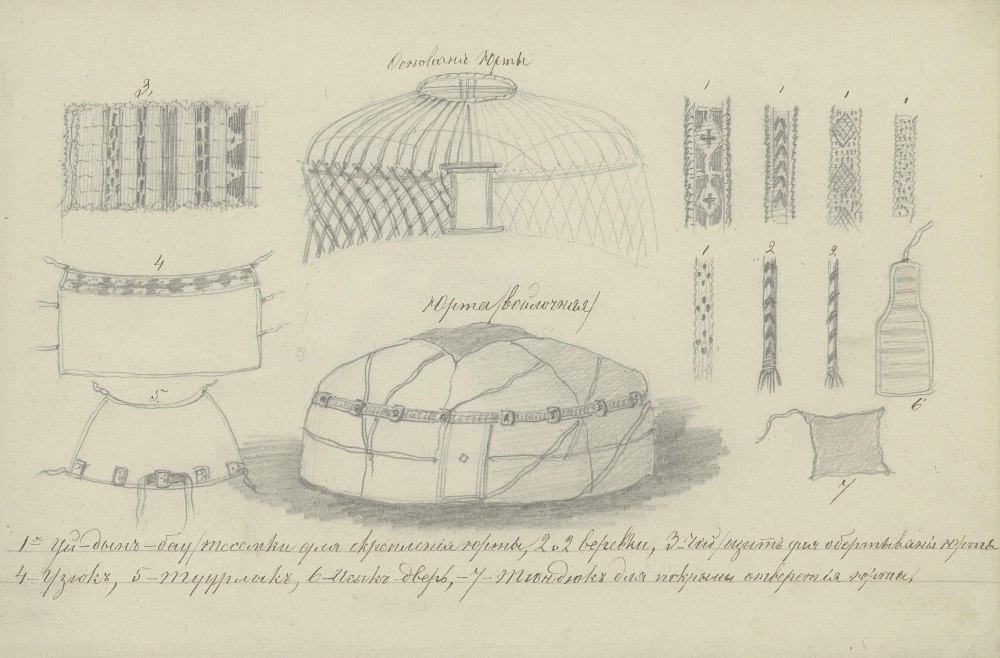 Основанiя Юрты
3.
1
1
1
1
4
Юрта /войлочная/
1
2
2
5.
6
7
1ᵃ Уй-дынъ-бау /тесемки для скрепленiя юрты, 2 и 2 веревки, 3-Чой /щитъ для обертыванiя юрты
4-Узюкъ, 5-Туурлыкъ, 6-Исикъ дверь,-7-Тюндюкъ для покрыши отверстiя юрты.